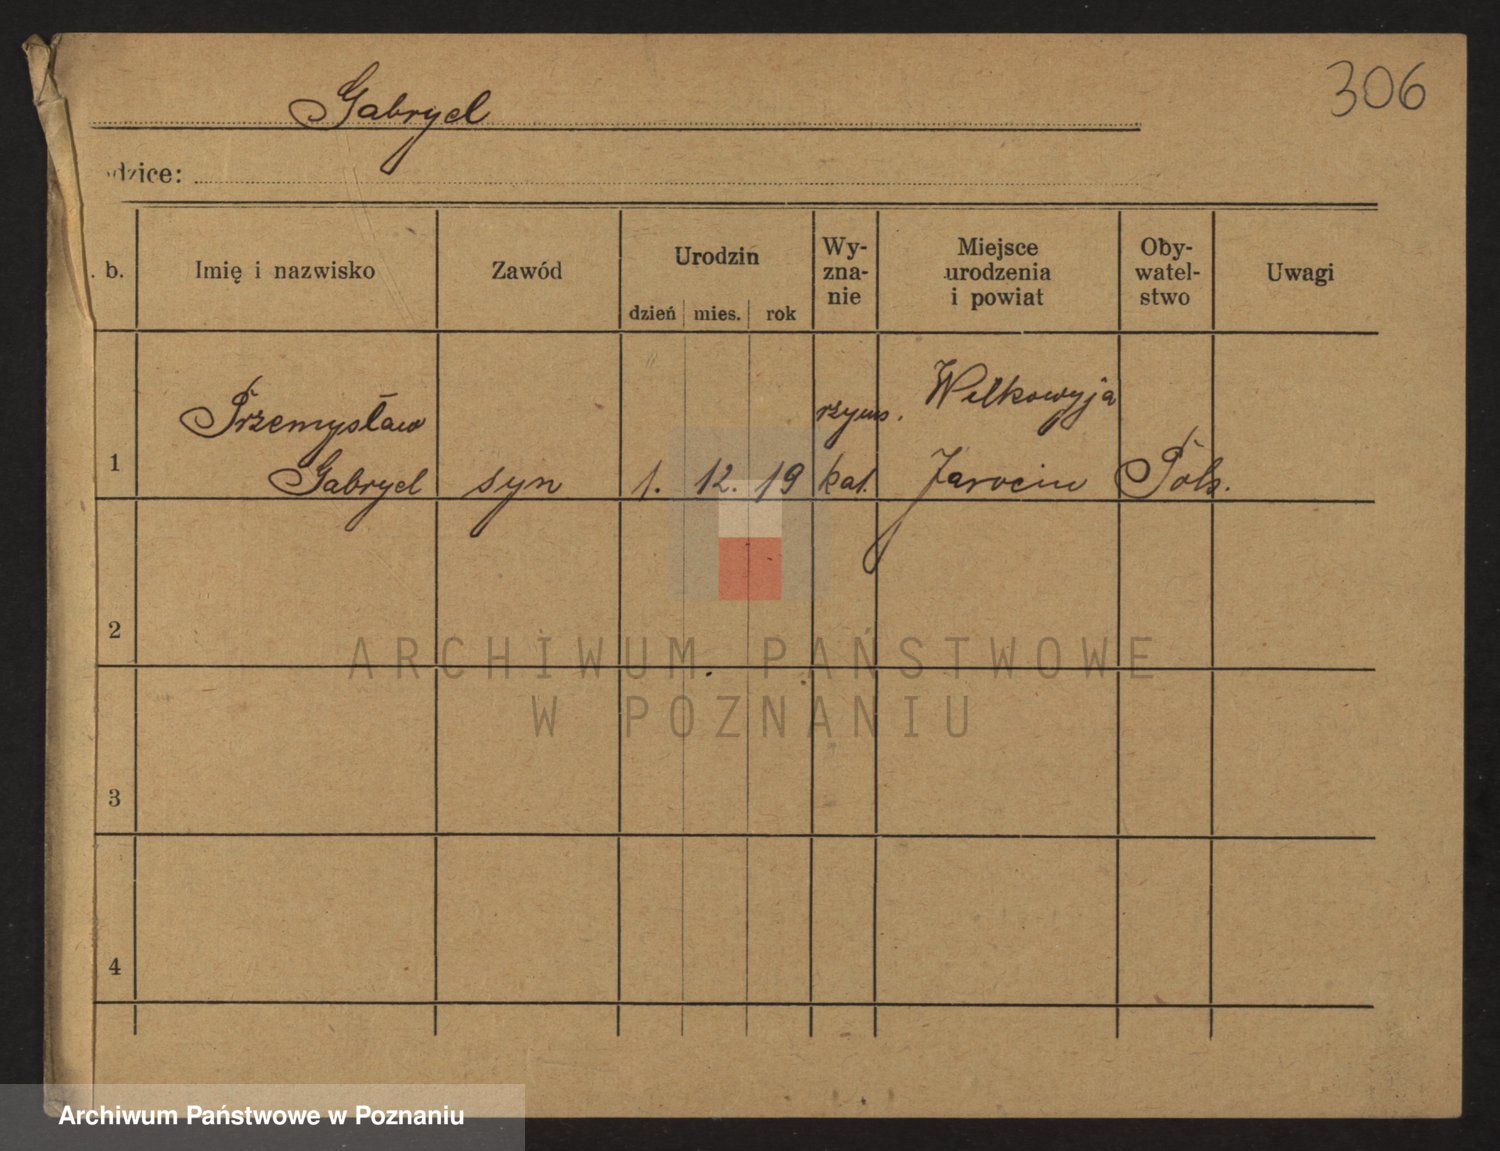 306
Gabryel
odzice:
. b.
Imię i nazwisko
Zawód
Urodzin
dzień
mies.
rok
Wy-
zna-
nie
Miejsce
urodzenia
i powiat
Oby-
watel-
stwo
Uwagi
1
Przemysław
Gabryel
syn
1. 12. 19
rzyms.
kat.
Wilkowyja
Jarocin
Pols.
2
3
4
ARCHIWUM PAŃSTWOWE
W POZNANIU
Archiwum Państwowe w Poznaniu